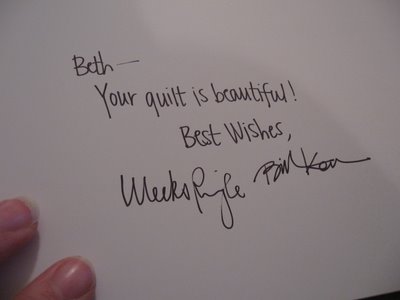 Beth—
Your quilt is beautiful!
Best Wishes,
Weeks Ringle Bill Kerr